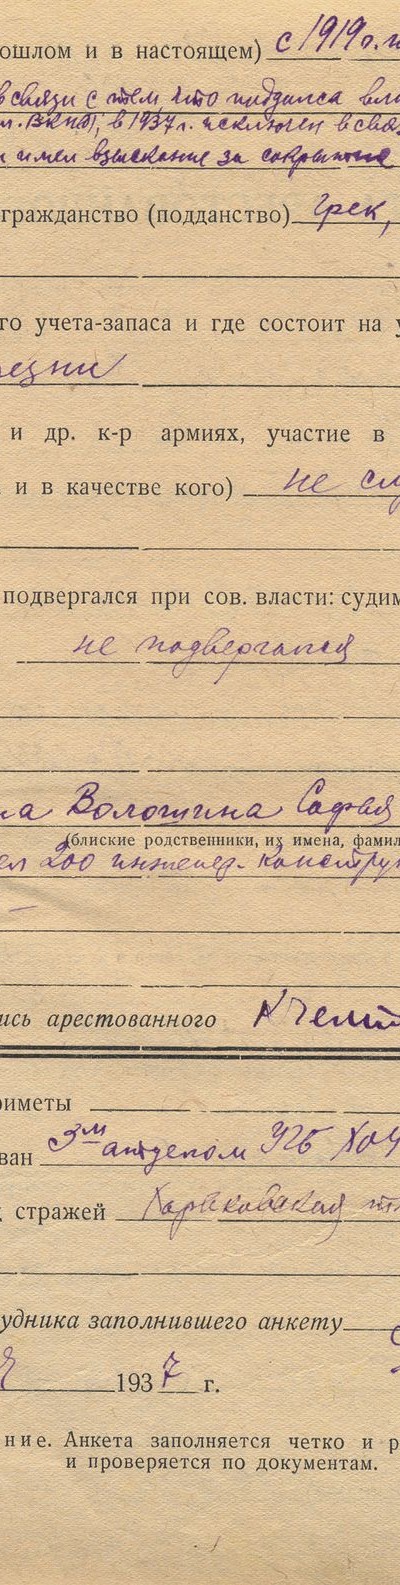 ошлом и в настоящем) с 1919 г.
в связи с тем, что поддался
ВКП(б), в 1937 г. исключен в свя
и имел взыскание за сокрытие
гражданство (подданство) Грек,
го учета-запаса и где состоит на у
езни
и др. к-р армиях, участие в
и в качестве кого) не сл
подвергался при сов. власти: судим
не подвергался
на Волошина Софья
(блиские родственники, их имена, фамил
200 инженер-конструк
ись арестованного
риметы
ван 3м отделом УГБ ХОУ
стражей Харьковская
удника заполнившего анкету
1937 г.
ние. Анкета заполняется четко и р
и проверяется по документам.